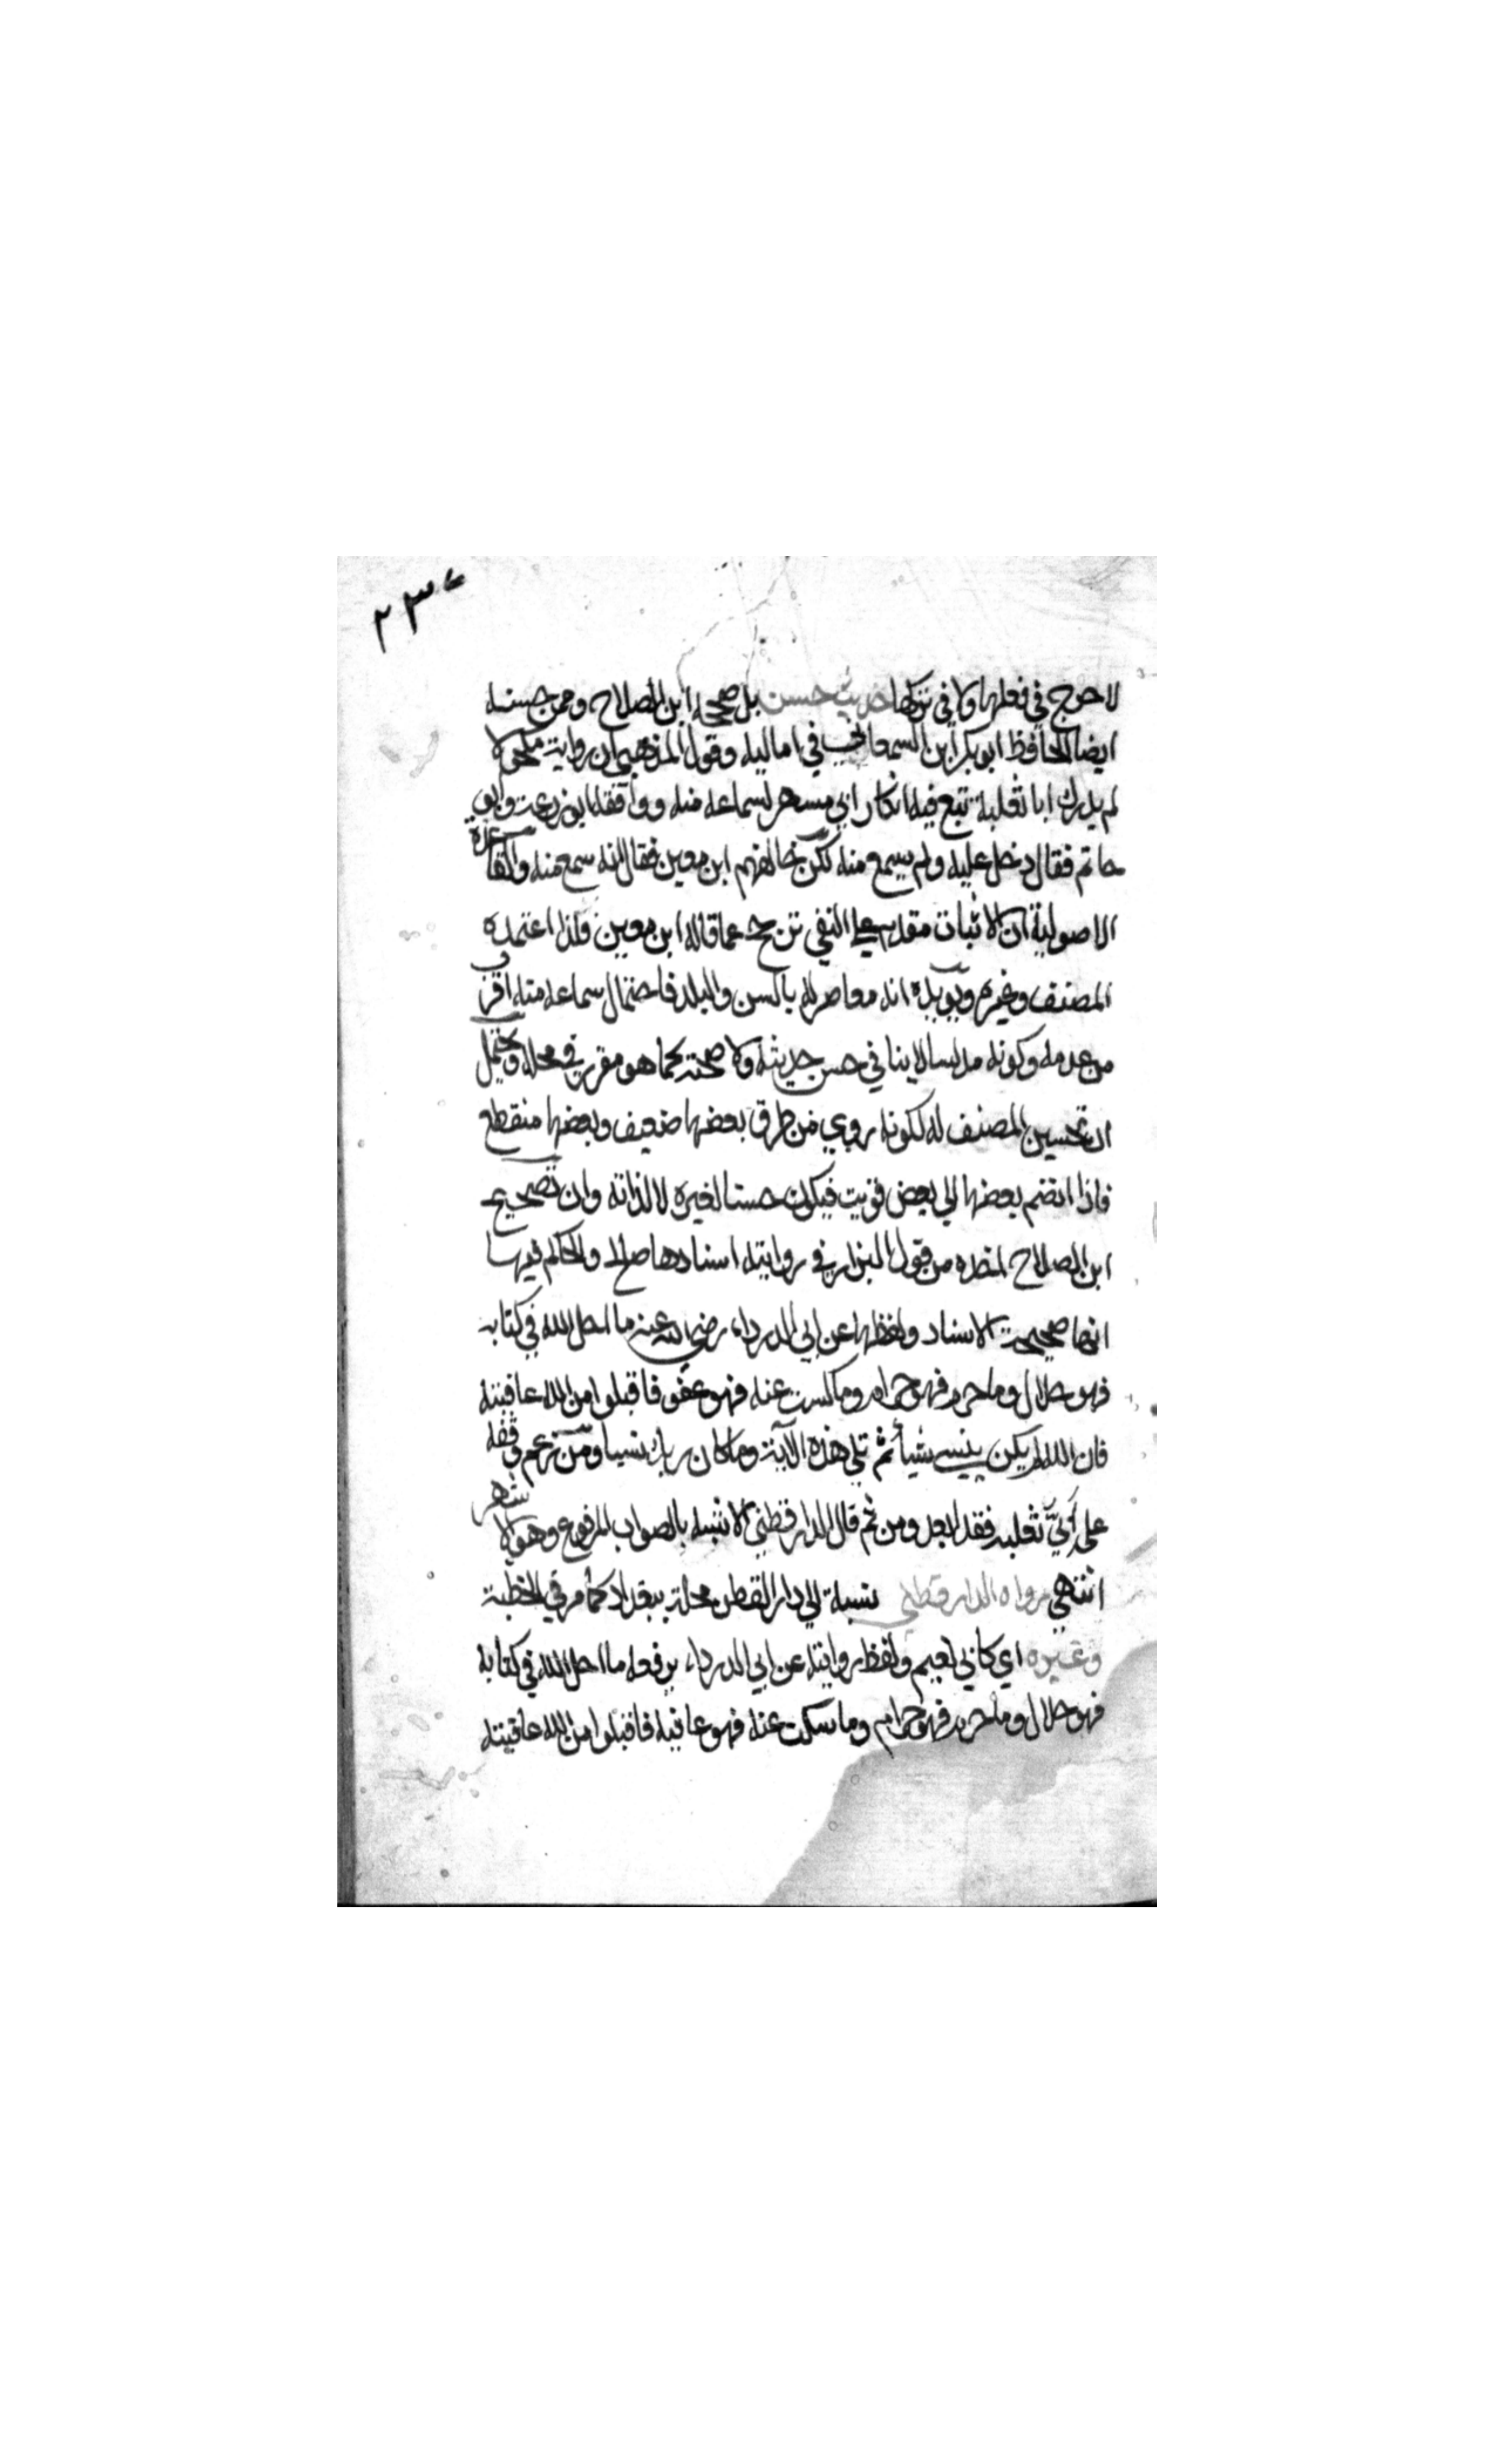 ٢٣٠
لا حرج في فعلها ولا في تركها حديث حسن بل صححه ابن الصلاح وممن حسنه
ايضا الحافظ ابو بكر ابن السمعاني في اماليه وقول الذهبي ان رواية مكحول
لم يدرك ابا ثعلبة تبع فيه انكار ابي مسهر لسماعه منه ووافقه ابو زرعة وابو
حاتم فقال دخل عليه ولم يسمع منه لكن خالفهم ابن معين فقال انه سمع منه والقاعدة
الاصولية ان الاثبات مقدم على النفي ترجح ما قاله ابن معين فلذا اعتمده
المصنف وغيره ويؤيده انه معاصر له بالسن والبلد فاحتمال سماعه منه اقرب
من عدمه وكونه مدلسا لا ينافي حسن حديثه ولا صحته كما هو مقرر في محله ويحتمل
ان تحسين المصنف له لكونه روي من طرق بعضها ضعيف وبعضها منقطع
فاذا انضم بعضها الي بعض قويت فيكون حسنا لغيره لا لذاته وان تصحيح
ابن الصلاح اخذه من قول البزار في روايته اسنادها صالح والحاكم فيها
انها صحيحة الاسناد ولفظها عن ابي الدرداء رضي الله عنه ما احل الله في كتابه
فهو حلال وما حرم فهو حرام وما سكت عنه فهو عفو فاقبلوا من الله عافيته
فان الله لم يكن ينسي شيأ ثم تلي هذه الآية وما كان ربك نسيا ومن زعم وقفه
على أبي ثعلبه فقد ابعد ومن ثم قال الدارقطني الاشبه بالصواب المرفوع وهو الاشهر
انتهي رواه الدارقطني نسبة الي دار القطن محلة ببغداد كما مر في الخطبة
وغيره اي كابي نعيم ولفظ روايته عن ابي الدرداء يرفعه ما احل الله في كتابه
فهو حلال وما حرم فهو حرام وما سكت عنه فهو عافيه فاقبلوا من الله عافيته